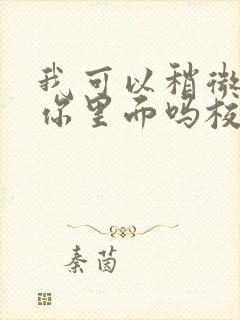 我可以稍微
你里而吗板
秦茵